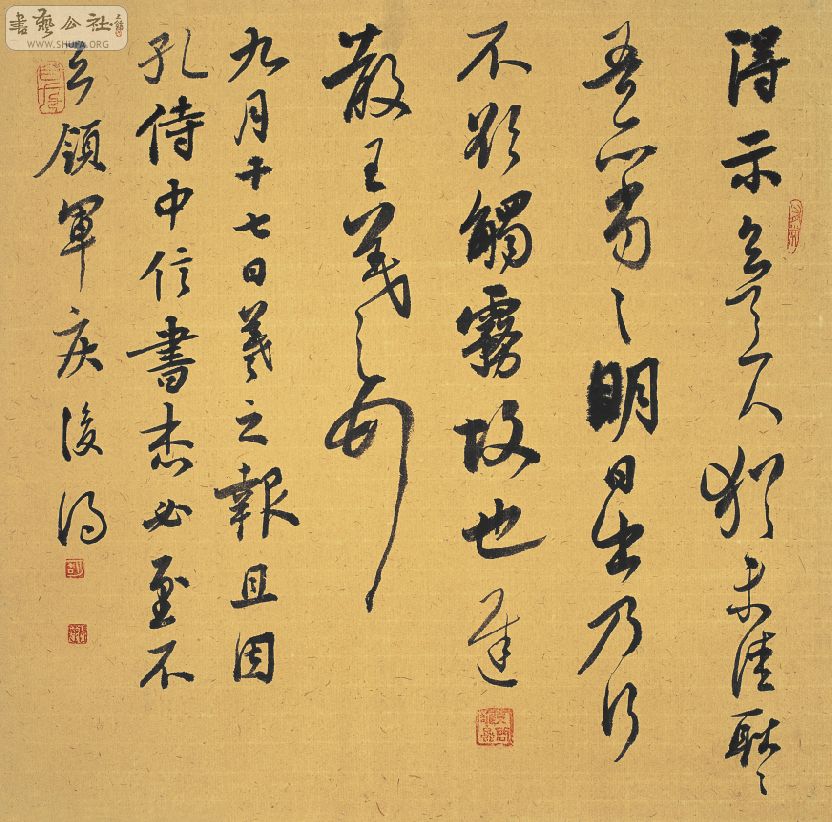 得示知足下猶未佳耿〻
吾亦劣〻明日出乃行
不欲觸霧故也遲
散王羲之頓首
九月十七日羲之報且因
孔侍中信書想必至不
知領軍疾後問
書藝公社
WWW.SHUFA.ORG